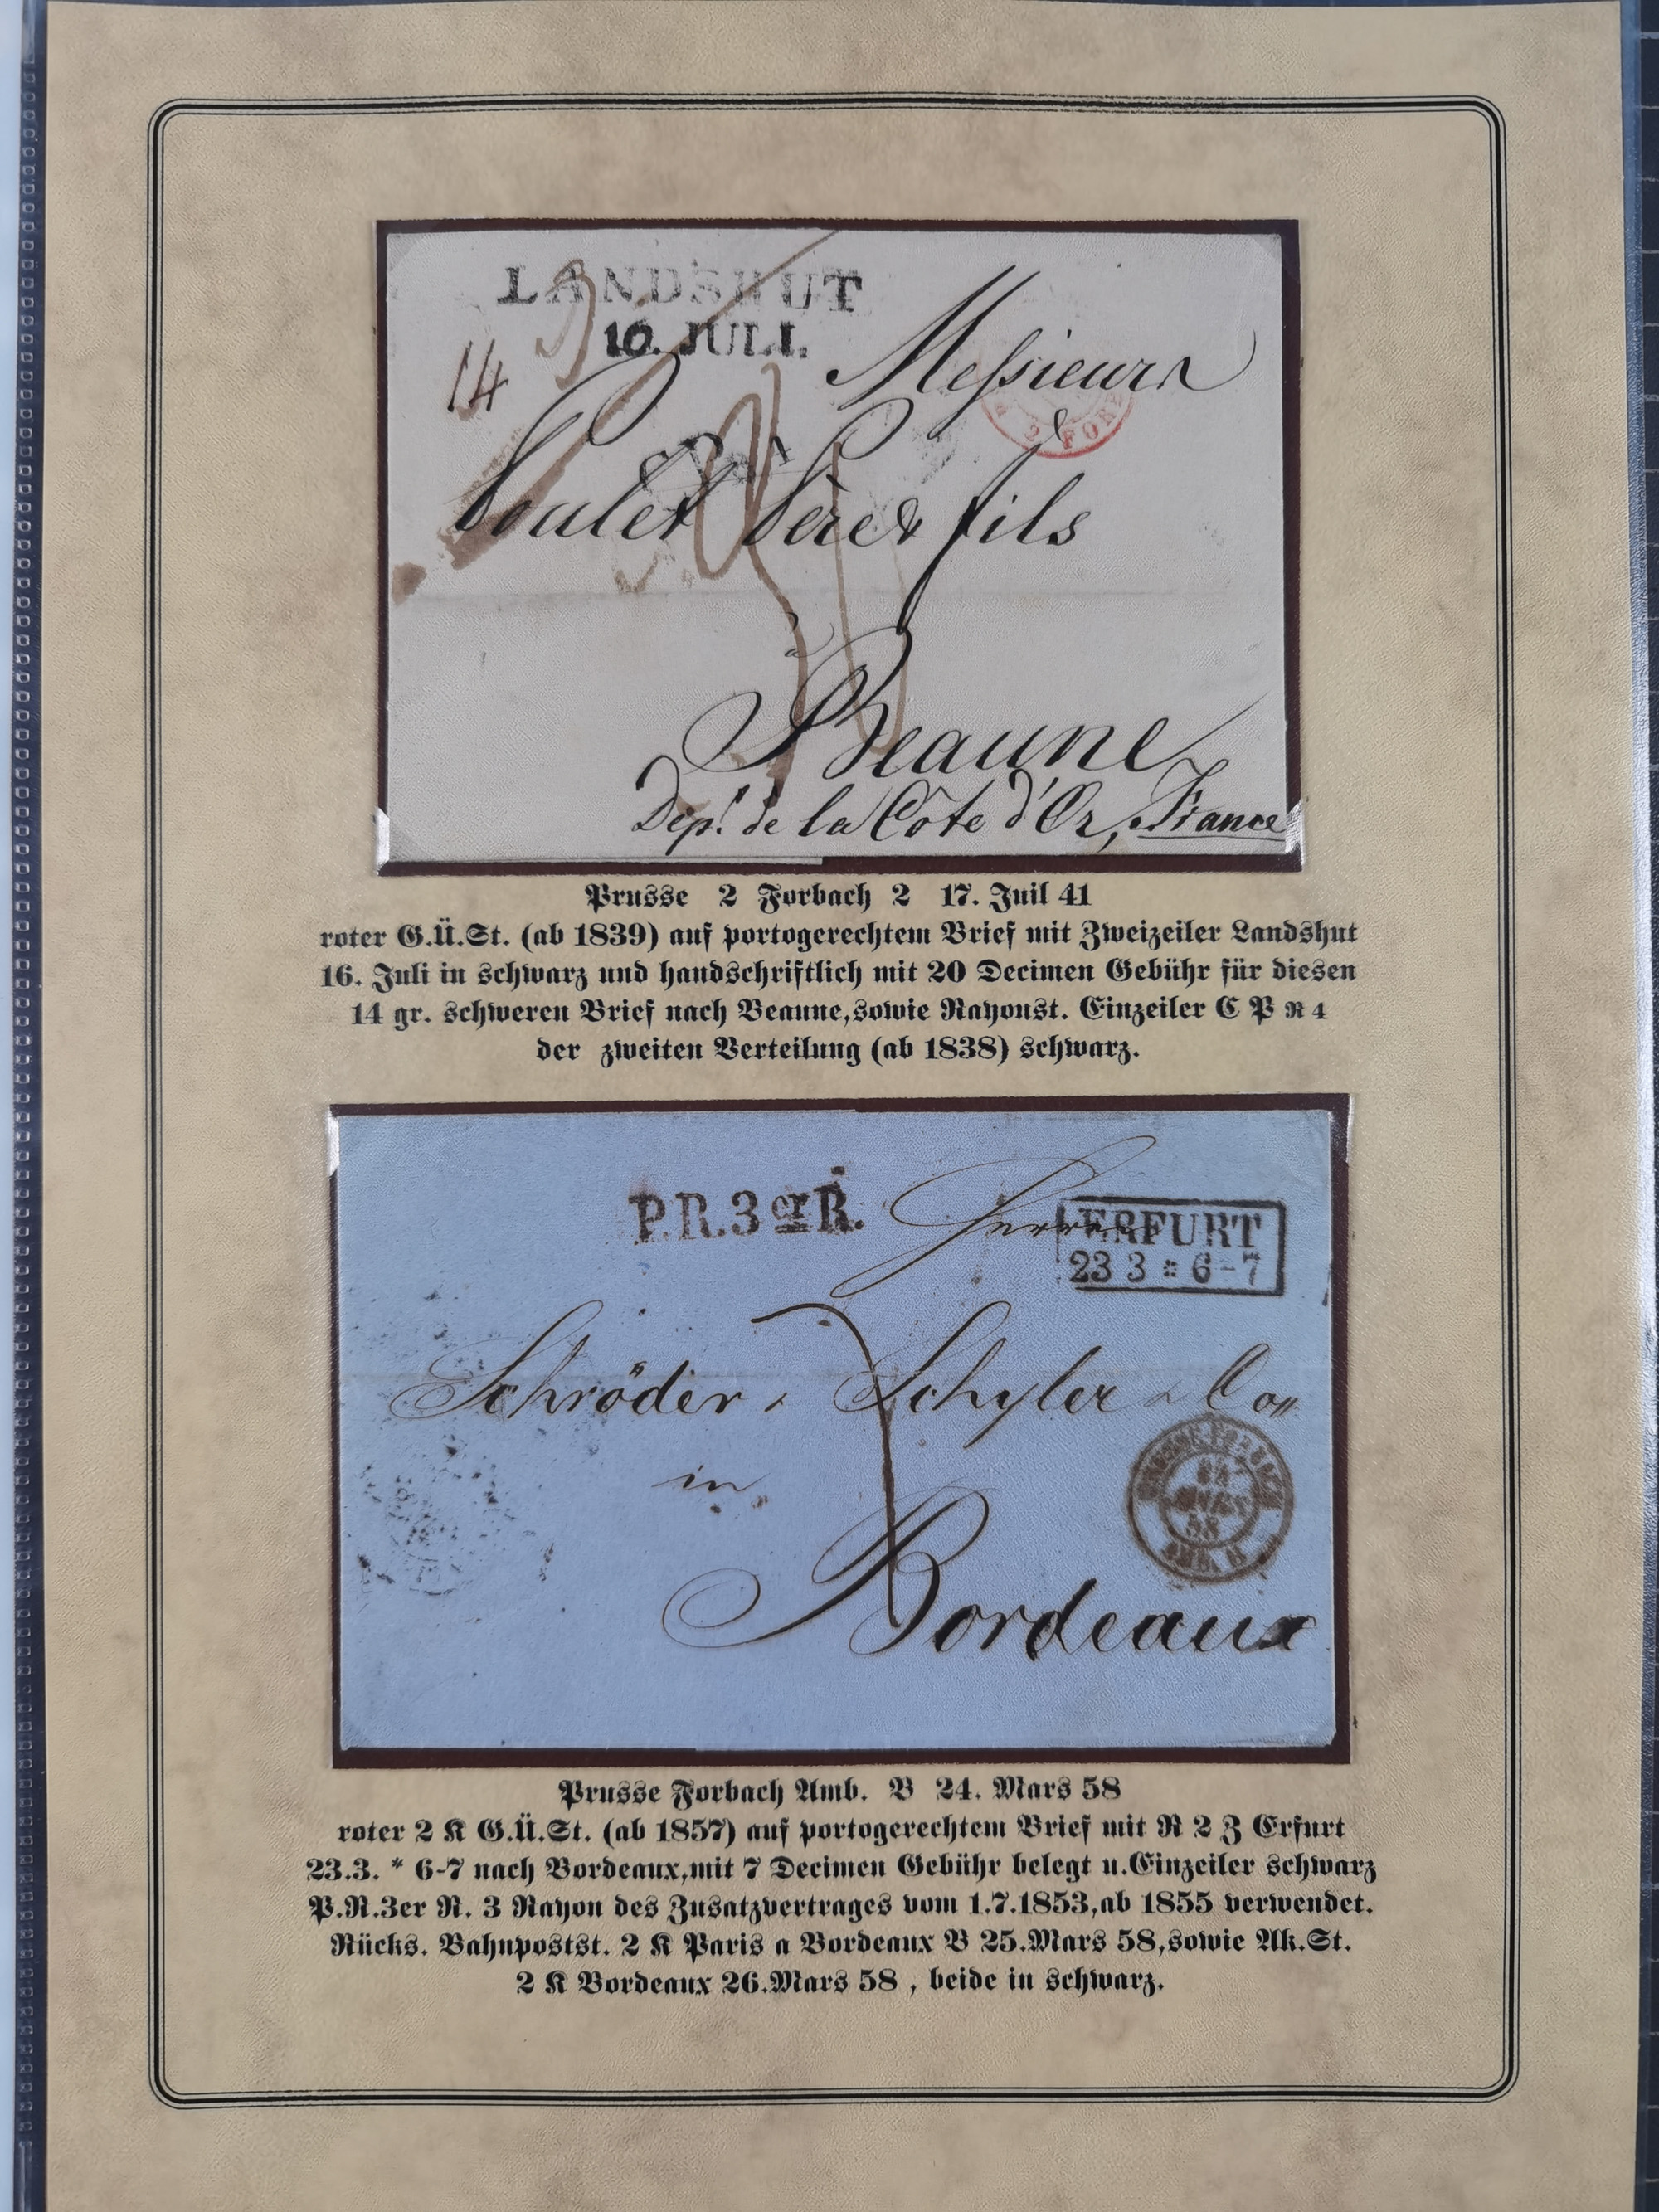 LANDSHUT
10. JULI.
14
Messieurs
Poulet Père & fils
à
Beaune
Dept. de la Côte d'Or, France
Prusse 2 Forbach 2 17. Juil 41
roter G.Ü.St. (ab 1839) auf portogerechtem Brief mit Zweizeiler Landshut
16. Juli in schwarz und handschriftlich mit 20 Decimen Gebühr für diesen
14 gr. schweren Brief nach Beaune,sowie Rayonst. Einzeiler C P R 4
der zweiten Verteilung (ab 1838) schwarz.
P.R.3er R.
Herren
ERFURT
23 3 * 6-7
7
Schröder & Schyler & Co
in
PRUSSE FORBACH
24
MARS
58
AMB. B
Bordeaux
Prusse Forbach Amb. B 24. Mars 58
roter 2 K G.Ü.St. (ab 1857) auf portogerechtem Brief mit R 2 Z Erfurt
23.3. * 6-7 nach Bordeaux,mit 7 Decimen Gebühr belegt u.Einzeiler schwarz
P.R.3er R. 3 Rayon des Zusatzvertrages vom 1.7.1853,ab 1855 verwendet.
Rücks. Bahnpostst. 2 K Paris a Bordeaux B 25.Mars 58,sowie Ak.St.
2 K Bordeaux 26.Mars 58 , beide in schwarz.